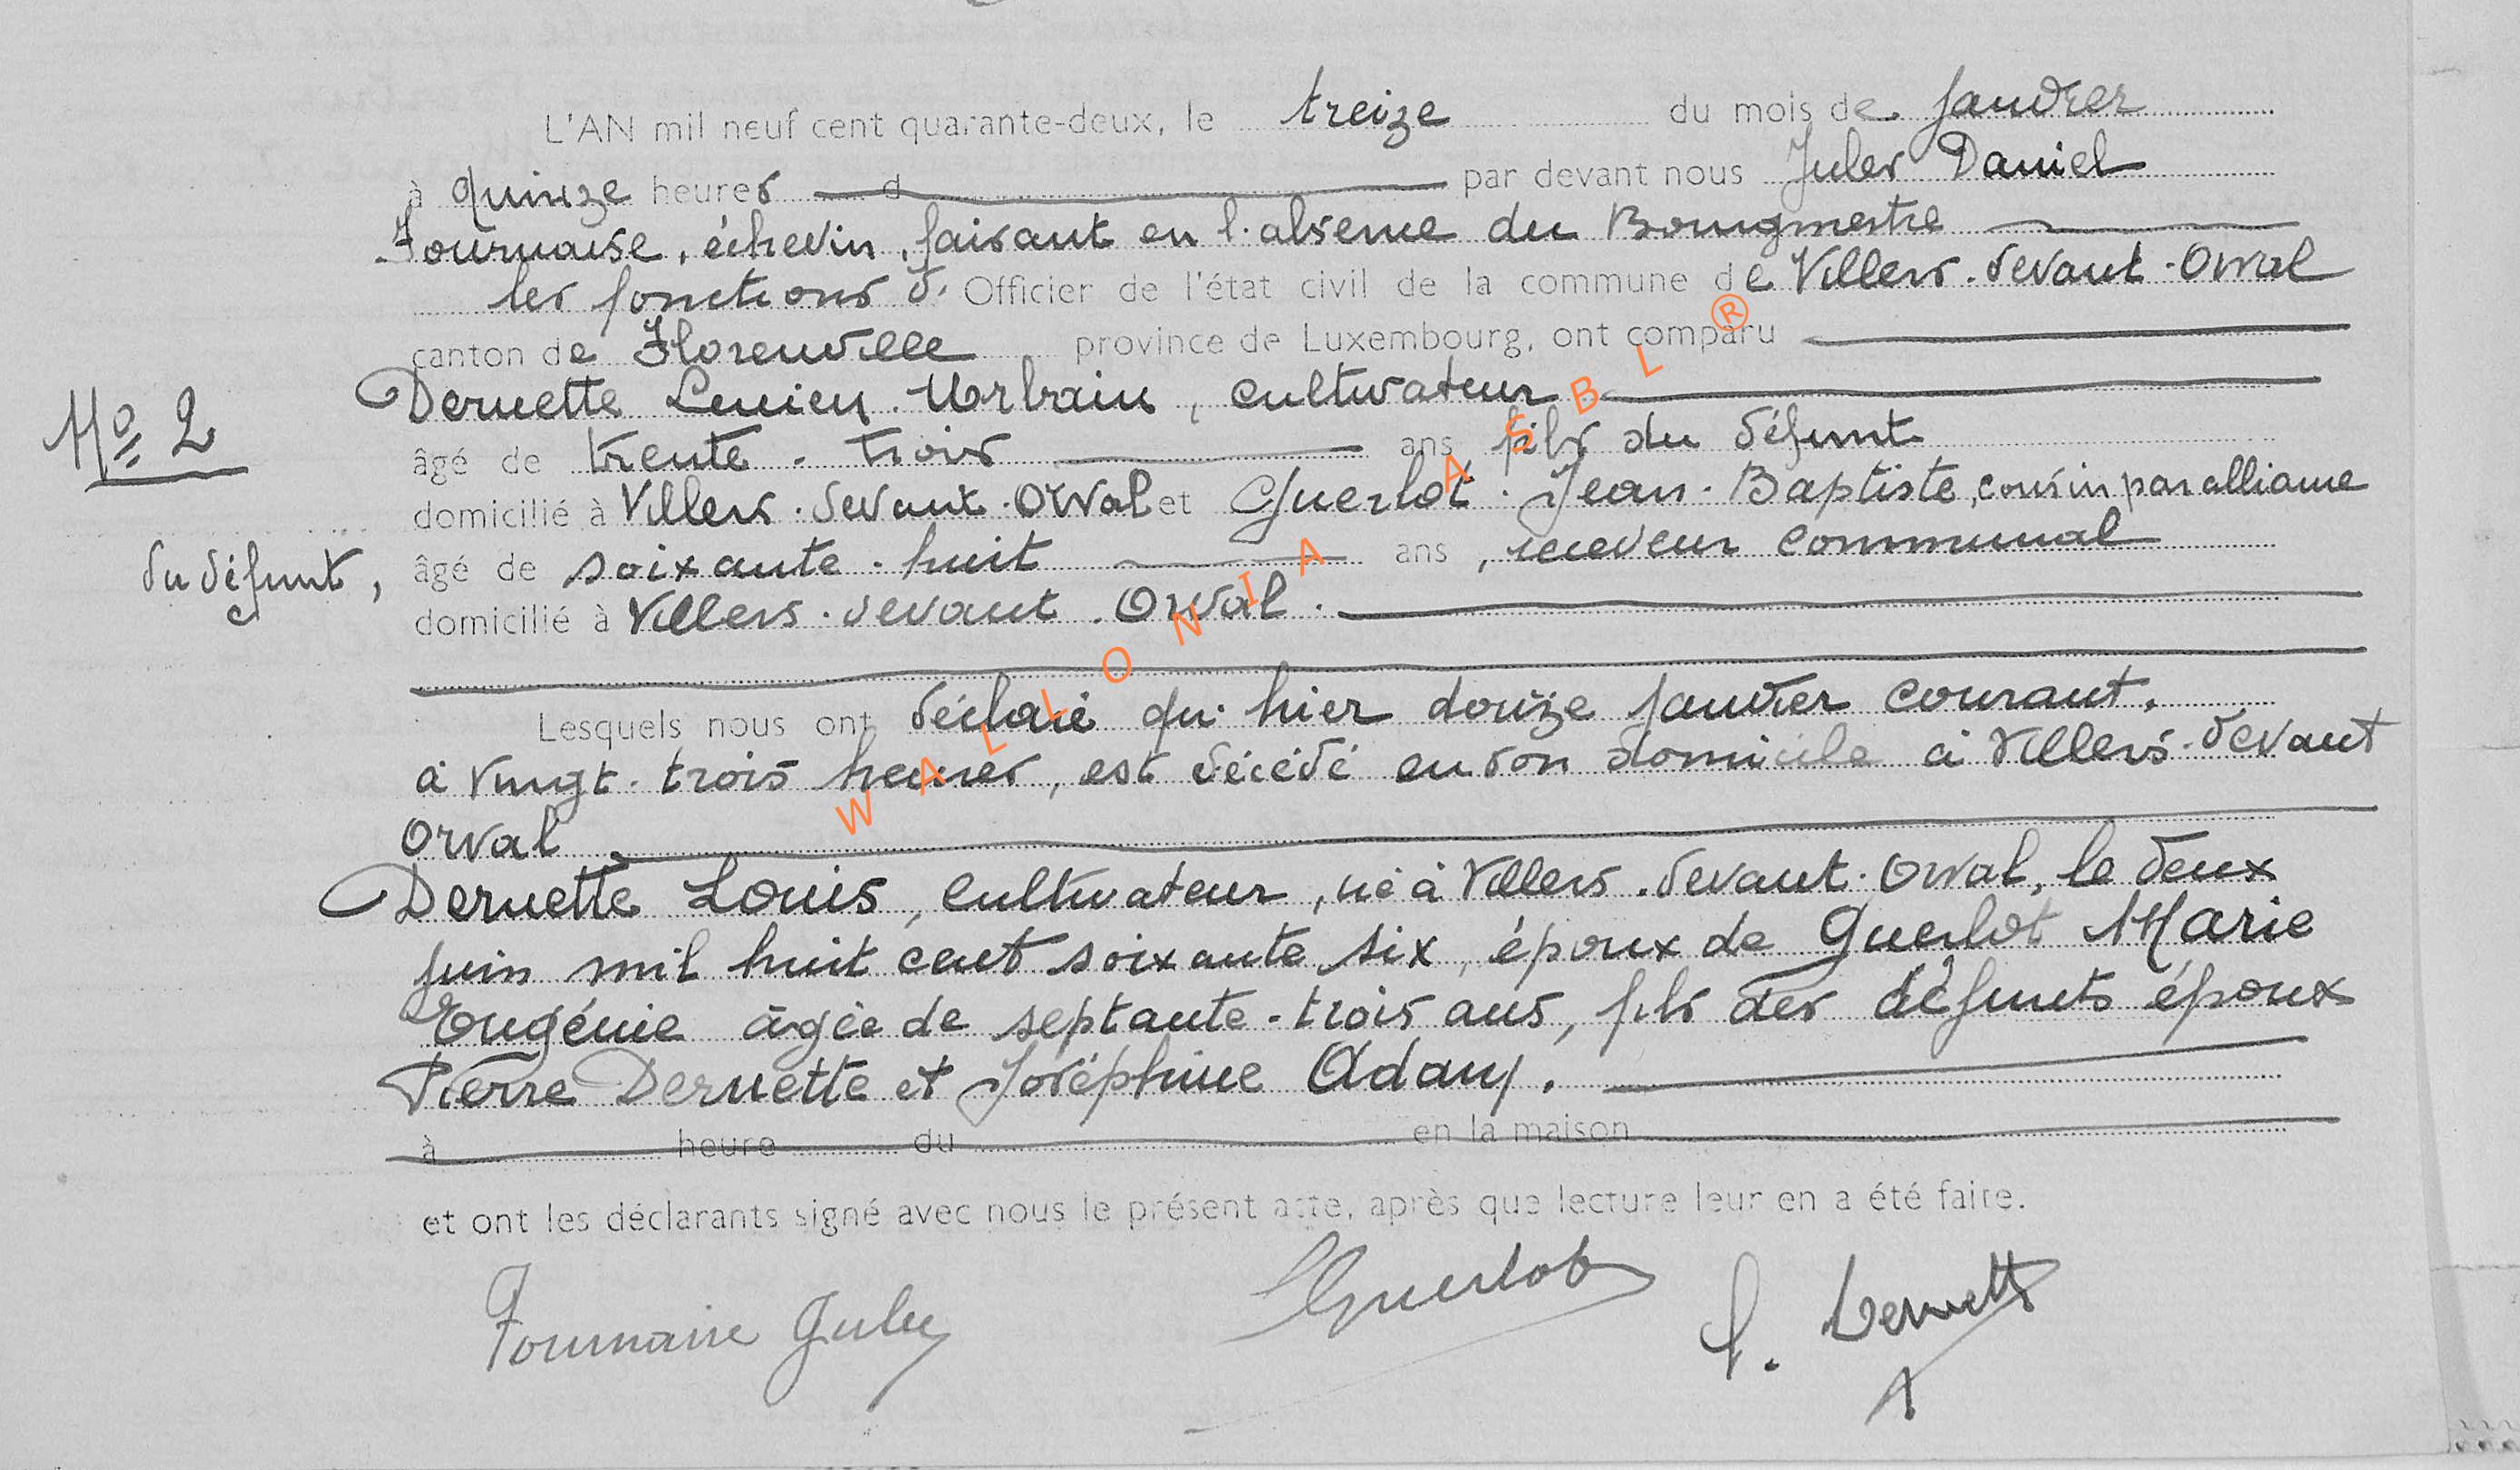 L'AN mil neuf cent quarante-deux, le treize du mois de Janvier
à quinze heures d par devant nous Jules Daniel
Fournaise, échevin, faisant en l'absence du Bourgmestre
les fonctions d' Officier de l'état civil de la commune de Villers-devant-Orval
canton de Florenville province de Luxembourg, ont comparu
Dernette Lucien-Urbain, cultivateur
No 2
âgé de trente-trois ans fils du défunt
domicilié à Villers-devant-Orval et Guerlot-Jean-Baptiste, cousin par alliance
du défunt, âgé de soixante-huit ans, receveur communal
domicilié à Villers-devant-Orval.
Lesquels nous ont déclaré qu'hier douze janvier courant,
à vingt-trois heures, est décédé en son domicile à Villers-devant
Orval
Dernette Louis, cultivateur, né à Villers-devant-Orval, le deux
juin mil huit cent soixante six, époux de Guerlot Marie
Eugénie âgée de septante-trois ans, fils des défunts époux
Pierre Dernette et Joséphine Adam.
à heure du en la maison
et ont les déclarants signé avec nous le présent acte, après que lecture leur en a été faite.
Fournaise Jules Guerlot L. Dernette
WALLONIA ASBL ®